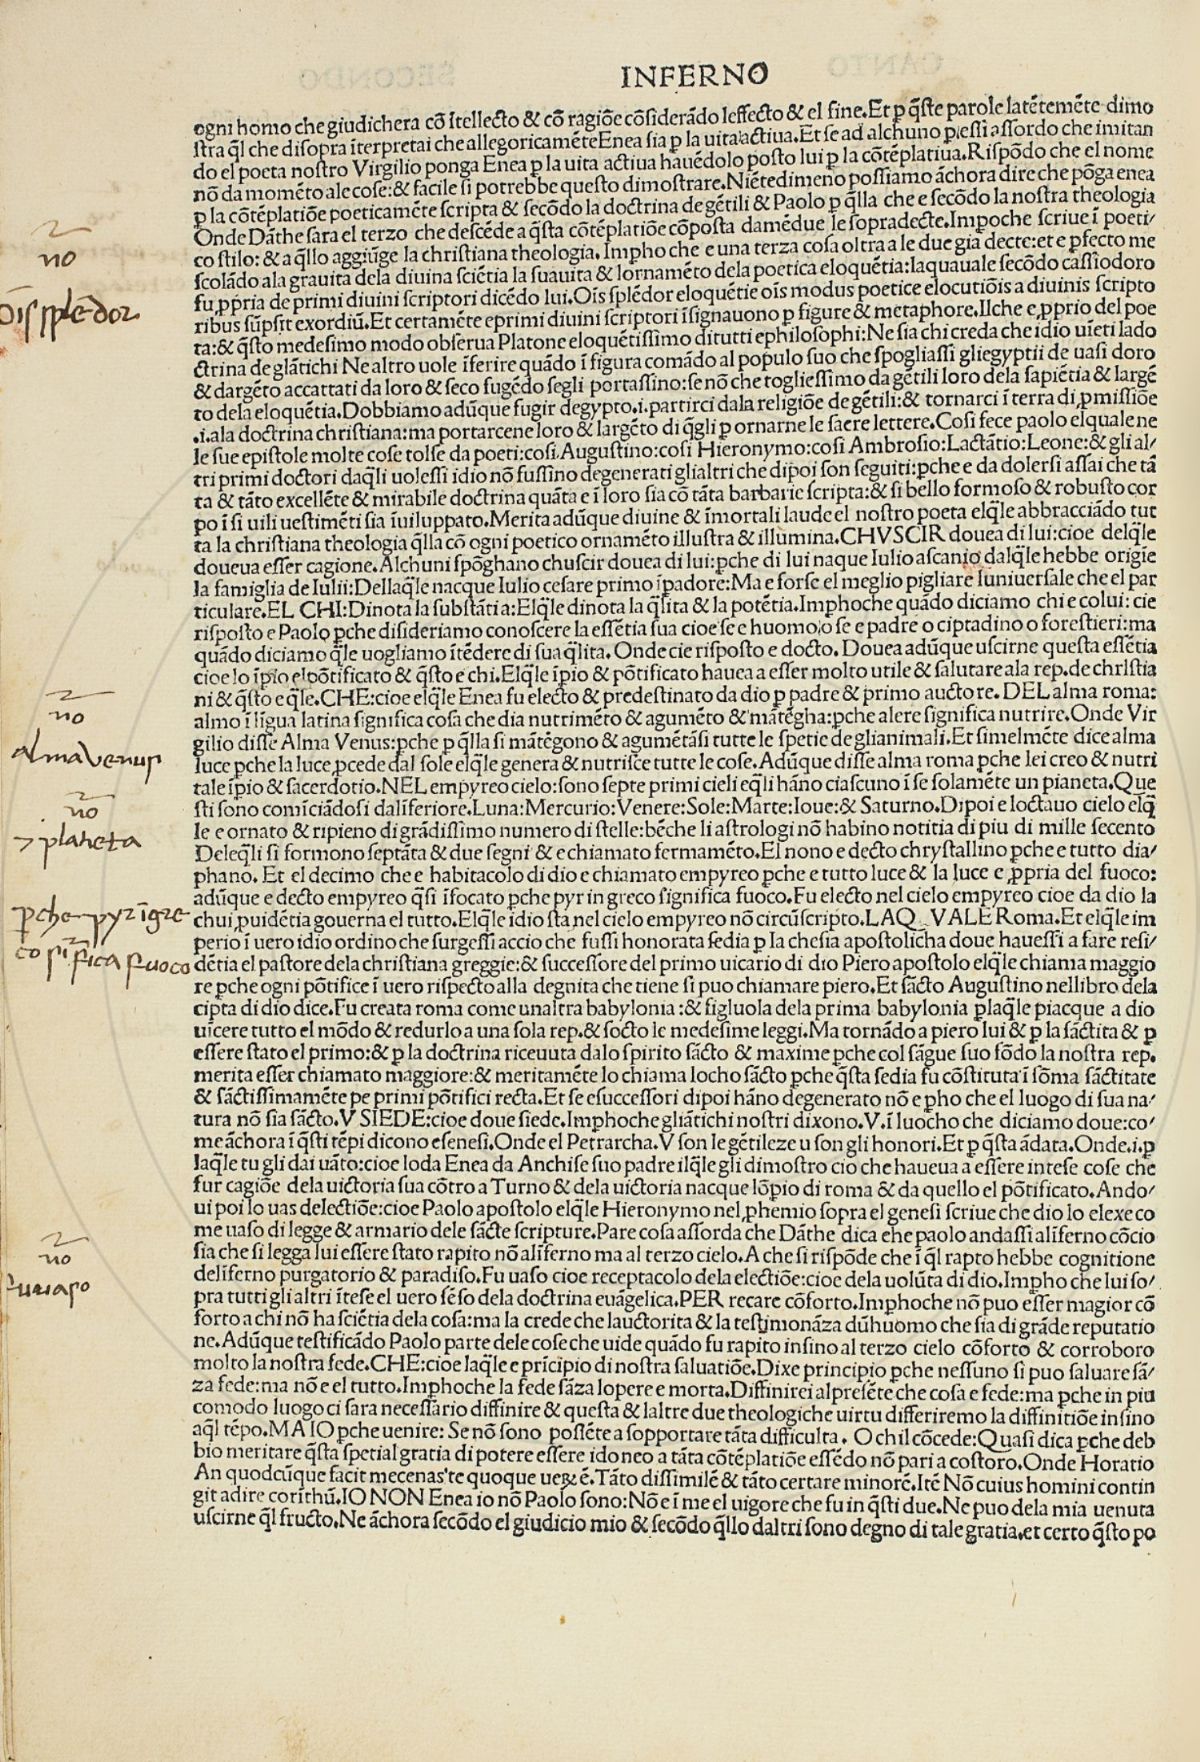 INFERNO
ogni homo che giudichera cō ītellecto & cō ragiōe cōsiderādo leffecto & el fine.Et ꝑ q̄ste parole latētemēte dimo
ſtra q̄l che diſopra īterpretai che allegoricamēte Enea ſia ꝑ la uita actiua.Et ſe ad alchuno pieſſi aſſordo che imitan
do el poeta noſtro Virgilio ponga Enea ꝑ la uita actiua hauēdolo poſto lui ꝑ la cōtēplatiua.Riſpōdo che el nome
nō da momēto ale coſe:& facile ſi potrebbe queſto dimoſtrare.Niētedimeno poſſiamo āchora dire che pōga enea
ꝑ la cōtēplatiōe poeticamēte ſcripta & ſecōdo la doctrina de gētili & Paolo ꝑ q̄lla che e ſecōdo la noſtra theologia
Onde Dāthe ſara el terzo che deſcēde a q̄ſta cōtēplatiōe cōpoſta damēdue le ſopradecte.Impoche ſcriue ī poeti/
co ſtilo: & a q̄llo aggiūge la chriſtiana theologia. Impho che e una terza coſa oltra a le due gia decte:et e ꝑfecto me
ſcolādo ala grauita dela diuina ſciētia la ſuauita & lornamēto dela poetica eloquētia:laquauale ſecōdo caſſiodoro
fu ꝓpria de primi diuini ſcriptori dicēdo lui.Oīs ſplēdor eloquētie oīs modus poetice elocutiōis a diuinis ſcripto
ribus ſūpſit exordiū.Et certamēte eprimi diuini ſcriptori īſignauono ꝑ figure & metaphore.Ilche e ꝓprio del poe
ta:& q̄ſto medeſimo modo obſerua Platone eloquētiſſimo ditutti ephiloſophi:Ne ſia chi creda che idio uieti lado
ctrina de glātichi Ne altro uole īferire quādo ī figura comādo al populo ſuo che ſpogliaſſi gliegyptii de uaſi doro
& dargēto accattati da loro & ſeco fugēdo ſegli portaſſino:ſe nō che toglieſſimo da gētili loro dela ſapiētia & largē
to dela eloquētia.Dobbiamo adūque fugir degypto.i.partirci dala religiōe de gētili:& tornarci ī terra di ꝓmiſſiōe
.i.ala doctrina chriſtiana:ma portarcene loro & largēto di q̄gli ꝑ ornarne le ſacre lettere.Coſi fece paolo elquale ne
le ſue epiſtole molte coſe tolſe da poeti:coſi Auguſtino:coſi Hieronymo:coſi Ambroſio:Lactātio:Leone:& gli al/
tri primi doctori daq̄li uoleſſi idio nō fuſſino degenerati glialtri che dipoi ſon ſeguiti:ꝑche e da dolerſi aſſai che tā
ta & tāto excellēte & mirabile doctrina quāta e ī loro ſia cō tāta barbarie ſcripta:& ſi bello formoſo & robuſto cor
po ī ſi uili ueſtimēti ſia īuiluppato.Merita adūque diuine & īmortali laude el noſtro poeta elq̄le abbracciādo tut
ta la chriſtiana theologia q̄lla cō ogni poetico ornamēto illuſtra & illumina.CHVSCIR douea di lui:cioe delq̄le
doueua eſſer cagione.Alchuni ſpōghano chuſcir douea di lui:ꝑche di lui naque Iulio aſcanio dalq̄le hebbe origīe
la famiglia de Iulii:Dellaq̄le nacque Iulio ceſare primo īpadore:Ma e forſe el meglio pigliare luniuerſale che el par
ticulare.EL CHI:Dinota la ſubſtātia:Elq̄le dinota la q̄lita & la potētia.Imphoche quādo diciamo chi e colui: cie
riſpoſto e Paolo ꝑche diſideriamo conoſcere la eſſētia ſua cioe ſe e huomo:o ſe e padre o ciptadino o foreſtieri:ma
quādo diciamo q̄le uogliamo ītēdere di ſua q̄lita. Onde cie riſpoſto e docto. Douea adūque uſcirne queſta eſſētia
cioe lo īpio el pōtificato & q̄ſto e chi.Elq̄le īpio & pōtificato hauea a eſſer molto utile & ſalutare ala rep.de chriſtia
ni & q̄ſto e q̄le.CHE:cioe elq̄le Enea fu electo & predeſtinato da dio ꝑ padre & primo auctore. DEL alma roma:
almo ī līgua latina ſignifica coſa che dia nutrimēto & agumēto & mātēgha:ꝑche alere ſignifica nutrire.Onde Vir
gilio diſſe Alma Venus:ꝑche ꝑ q̄lla ſi mātēgono & agumētāſi tutte le ſpetie de glianimali.Et ſimelmēte dice alma
luce ꝑche la luce ꝓcede dal ſole elq̄le genera & nutriſce tutte le coſe. Adūque diſſe alma roma ꝑche lei creo & nutri
tale īpio & ſacerdotio.NEL empyreo cielo:ſono ſepte primi cieli eq̄li hāno ciaſcuno ī ſe ſolamēte un pianeta.Que
ſti ſono comīciādoſi dalīferiore.Luna:Mercurio:Venere:Sole:Marte:Ioue:& Saturno.Dipoi e loctauo cielo elq̄
le e ornato & ripieno di grādiſſimo numero di ſtelle:bēche li aſtrologi nō habino notitia di piu di mille ſecento
Deleq̄li ſi formono ſeptāta & due ſegni & e chiamato fermamēto.El nono e decto chryſtallino ꝑche e tutto dia/
phano. Et el decimo che e habitacolo di dio e chiamato empyreo ꝑche e tutto luce & la luce e ꝓpria del fuoco:
adūque e decto empyreo q̄ſi īfocato ꝑche pyr in greco ſignifica fuoco.Fu electo nel cielo empyreo cioe da dio la
chui ꝓuidētia gouerna el tutto.Elq̄le idio ſta nel cielo empyreo nō circūſcripto.LAQ VALE Roma.Et elq̄le im
perio ī uero idio ordino che ſurgeſſi accio che fuſſi honorata ſedia ꝑ la cheſia apoſtolicha doue haueſſi a fare reſi/
dētia el paſtore dela chriſtiana greggie:& ſucceſſore del primo uicario di dio Piero apoſtolo elq̄le chiama maggio
re ꝑche ogni pōtifice ī uero riſpecto alla degnita che tiene ſi puo chiamare piero.Et ſācto Auguſtino nel libro dela
cipta di dio dice.Fu creata roma come unaltra babylonia :& figluola dela prima babylonia ꝑlaq̄le piacque a dio
uīcere tutto el mōdo & redurlo a una ſola rep.& ſocto le medeſime leggi.Ma tornādo a piero lui & ꝑ la ſāctita & ꝑ
eſſere ſtato el primo:& ꝑ la doctrina riceuuta dalo ſpirito ſācto & maxime ꝑche col ſāgue ſuo fōdo la noſtra rep.
merita eſſer chiamato maggiore:& meritamēte lo chiama locho ſācto ꝑche q̄ſta ſedia fu cōſtituta ī ſōma ſāctitate
& ſāctiſſimamēte pe primi pōtifici recta.Et ſe eſucceſſori dipoi hāno degenerato nō e ꝑho che el luogo di ſua na/
tura nō ſia ſācto.V SIEDE:cioe doue ſiede.Imphoche gliātichi noſtri dixono.V.ī luocho che diciamo doue:co/
me āchora ī q̄ſti tēpi dicono eſeneſi.Onde el Petrarcha.V ſon le gētileze u ſon gli honori.Et ꝑ q̄ſta ādata.Onde.i.ꝑ
laq̄le tu gli dai uāto:cioe loda Enea da Anchiſe ſuo padre ilq̄le gli dimoſtro cio che haueua a eſſere inteſe coſe che
fur cagiōe dela uictoria ſua cōtro a Turno & dela uictoria nacque lōpio di roma & da quello el pōtificato.Ando/
ui poi lo uas delectiōe:cioe Paolo apoſtolo elq̄le Hieronymo nel ꝓhemio ſopra el geneſi ſcriue che dio lo elexe co
me uaſo di legge & armario dele ſācte ſcripture.Pare coſa aſſorda che Dāthe dica che paolo andaſſi alīferno cōcio
ſia che ſi legga lui eſſere ſtato rapito nō alīferno ma al terzo cielo.A che ſi riſpōde che ī q̄l rapto hebbe cognitione
delīferno purgatorio & paradiſo.Fu uaſo cioe receptacolo dela electiōe:cioe dela uolūta di dio.Impho che lui ſo/
pra tutti gli altri īteſe el uero ſēſo dela doctrina euāgelica.PER recare cōforto.Imphoche nō puo eſſer magior cō
forto a chi nō ha ſciētia dela coſa:ma la crede che lauctorita & la teſtimonāza dūhuomo che ſia di grāde reputatio
ne.Adūque teſtificādo Paolo parte dele coſe che uide quādo fu rapito inſino al terzo cielo cōforto & corroboro
molto la noſtra fede.CHE:cioe laq̄le e prīcipio di noſtra ſaluatiōe.Dixe principio ꝑche neſſuno ſi puo ſaluare ſā/
za fede:ma nō e el tutto.Imphoche la fede ſāza lopere e morta.Diffinirei alpreſēte che coſa e fede:ma ꝑche in piu
comodo luogo ci ſara neceſſario diffinire & queſta & laltre due theologiche uirtu differiremo la diffinitiōe inſino
aq̄l tēpo.MA IO ꝑche uenire: Se nō ſono poſſēte a ſopportare tāta difficulta. O chil cōcede:Quaſi dica ꝑche deb
bio meritare q̄ſta ſpetial gratia di potere eſſere idoneo a tāta cōtēplatiōe eſſēdo nō pari a coſtoro.Onde Horatio
An quodcūque facit mecenas te quoque ueꝝ ē.Tāto diſſimilē & tāto certare minorē.Itē Nō cuius homini contin
git adire corīthū.IO NON Enea io nō Paolo ſono:Nō e ī me el uigore che fu in q̄ſti due.Ne puo dela mia uenuta
uſcirne q̄l fructo.Ne āchora ſecōdo el giudicio mio & ſecōdo q̄llo daltri ſono degno di tale gratia.et certo q̄ſto po
no
Oīs splēdor
no
alma venus
no
7 planeta
ꝑche pyr ī gre
co sīfica fuoco
no
fu uaso